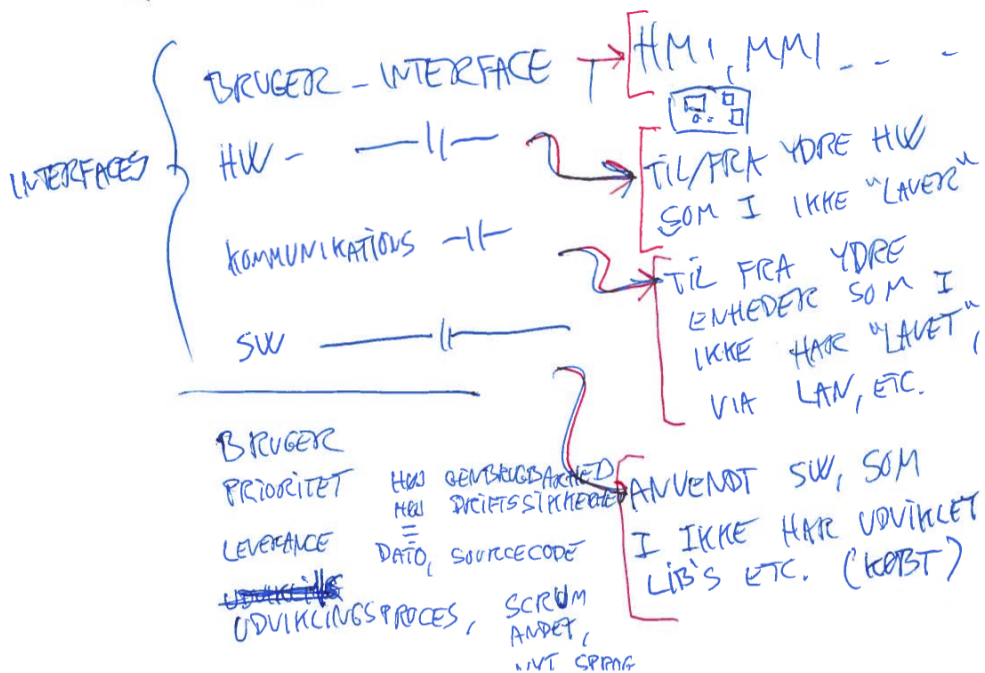 INTERFACES
BRUGER - INTERFACE
HMI, MMI - - -
HW - —||—
TIL/FRA YDRE HW
SOM I IKKE "LAVER"
KOMMUNIKATIONS —||—
TIL FRA YDRE
ENHEDER SOM I
IKKE HAR "LAVET",
VIA LAN, ETC.
SW —||—
ANVENDT SW, SOM
I IKKE HAR UDVIKLET
LIB'S ETC. (KØBT)
BRUGER
PRIORITET HØJ GENBRUGBARHED
HØJ DRIFTSSIKKERHED
LEVERANCE DATO, SOURCECODE
UDVIKLINGSPROCES, SCRUM
ANDET,
NYT SPROG